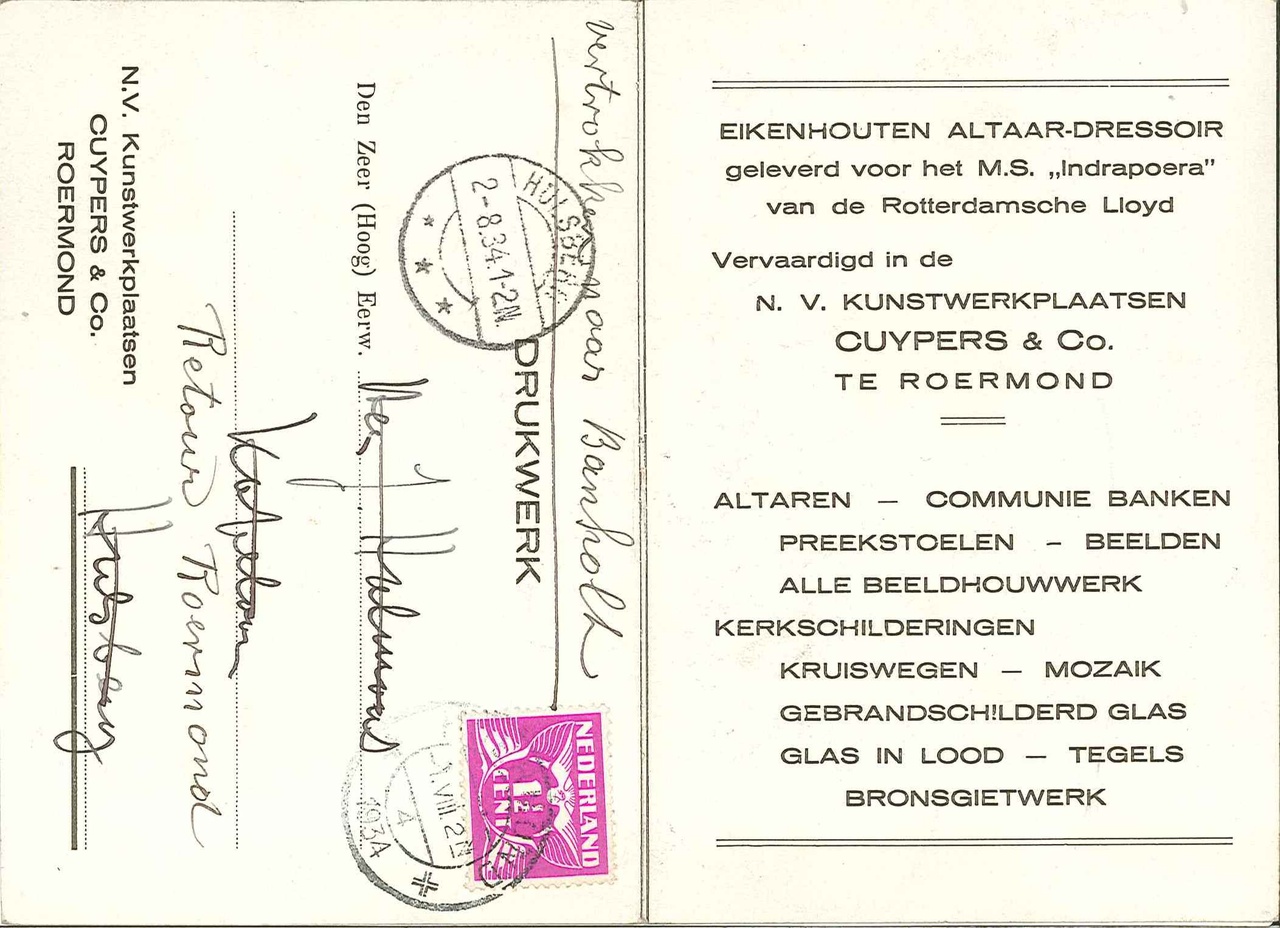 vertrokken naar Banholt
DRUKWERK
HULSBERG
2-8.34.1-2N.
NEDERLAND
1½
CENT
1 VIII.2N
4
1934
Den Zeer (Hoog) Eerw.
J. H
Retour Roermond
Hulsberg
N.V. Kunstwerkplaatsen
CUYPERS & Co.
ROERMOND
EIKENHOUTEN ALTAAR-DRESSOIR
geleverd voor het M.S. „Indrapoera”
van de Rotterdamsche Lloyd
Vervaardigd in de
N. V. KUNSTWERKPLAATSEN
CUYPERS & Co.
TE ROERMOND
ALTAREN — COMMUNIE BANKEN
PREEKSTOELEN – BEELDEN
ALLE BEELDHOUWWERK
KERKSCHILDERINGEN
KRUISWEGEN — MOZAIK
GEBRANDSCHILDERD GLAS
GLAS IN LOOD — TEGELS
BRONSGIETWERK